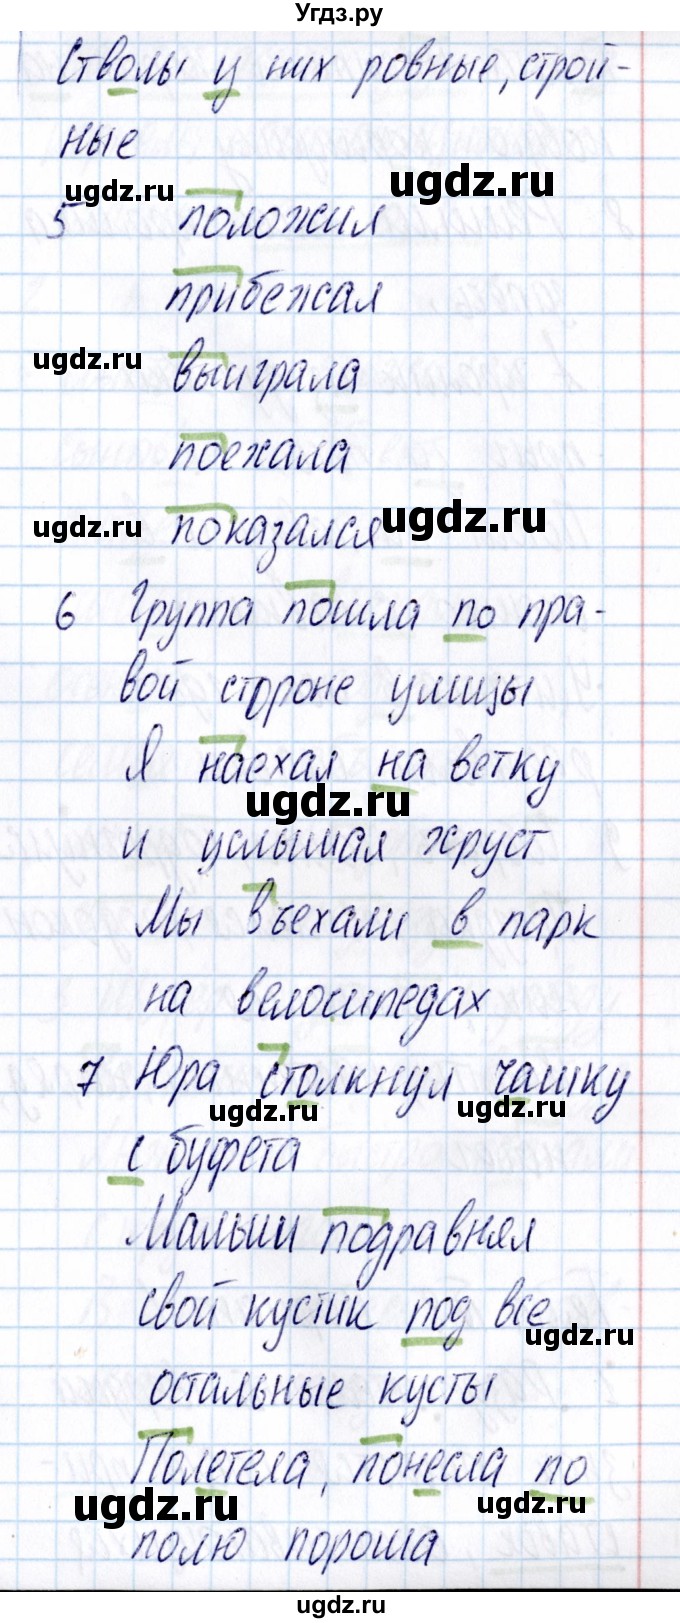 Угдз.ру
Стволы у них ровные, строй-
ные
ugdz.ru ugdz.ru
5 положил
прибежал
ugdz.ru
выиграла
поехала
ugdz.ru ugdz.ru
показался
6 Группа пошла по пра-
вой стороне улицы
Я наехал на ветку
ugdz.ru
и услышал хруст
Мы въехали в парк
на велосипедах
7 Юра столкнул чашку
ugdz.ru ugdz.ru
с буфета
Малыш подравнял
свой кустик под все
ugdz.ru
остальные кусты
Полетела, понесла по
ugdz.ru ugdz.ru
полю пороша
ugdz.ru ugdz.ru